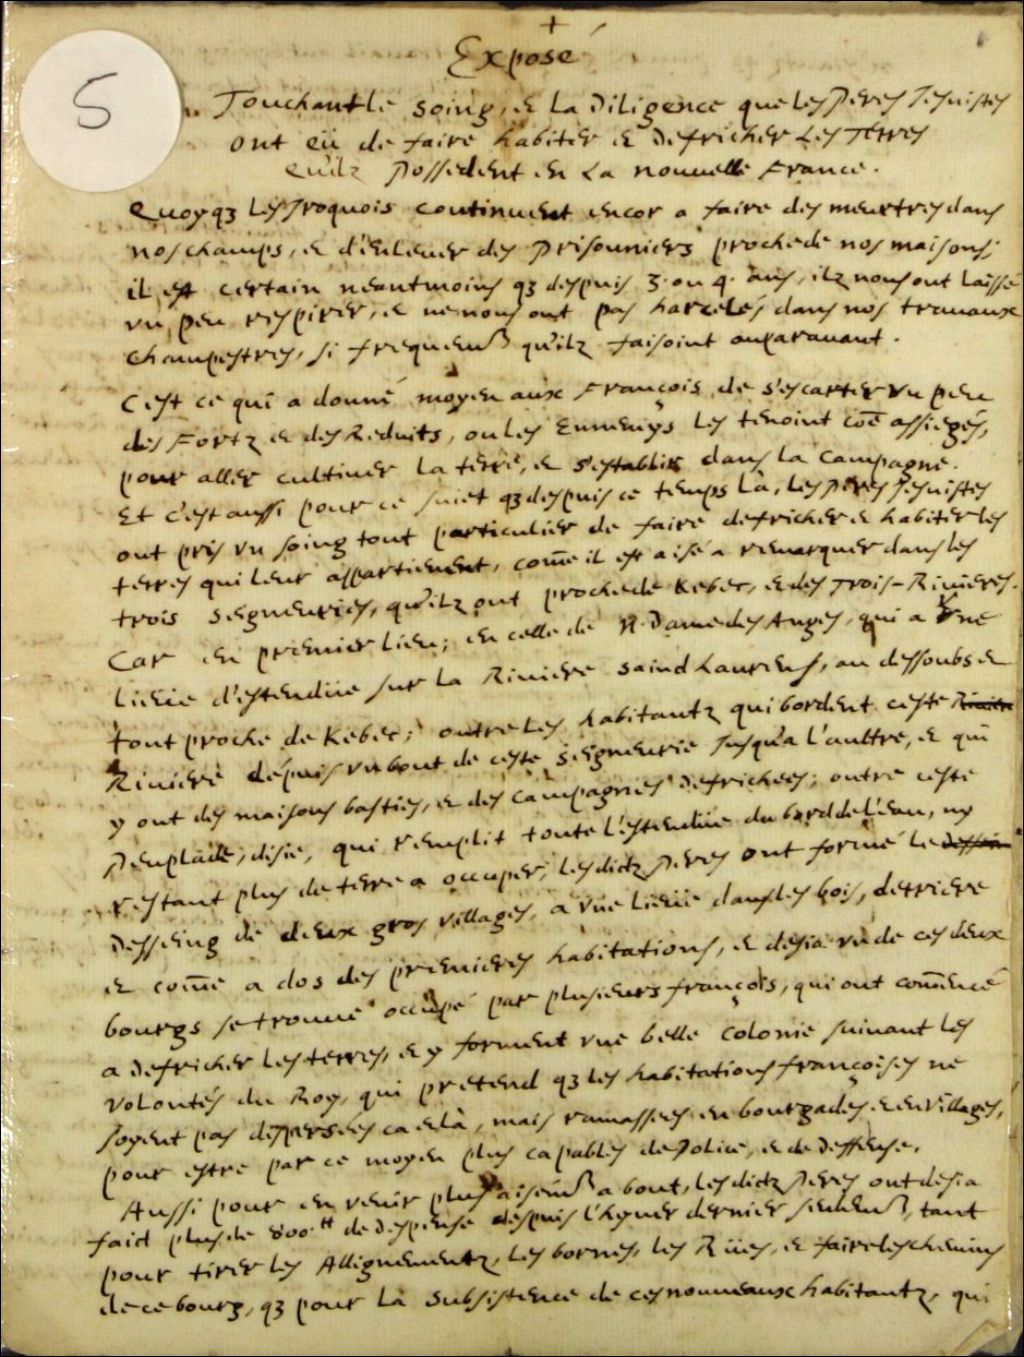 +
Exposé
5
Touchant le soing, & la Diligence que les Peres Jesuistes
ont eü de faire habiter & Defricher Les Terres
qu'ilz Possedent en La nouuelle France.
Quoyqз Les Iroquois continuent encor a faire des meurtres dans
nos champs, & d'enleuer des Prisonniers proche de nos maisons;
il est certain neantmoins qз despuis 3. ou 4. ans, ilz nous ont laissé
vn peu respirer, & ne nous ont pas harcelés dans nos trauaux
champestres, si frequem̃t qu'ilz faisoint auparauant.
C'est ce qui a donné moyen aux François de s'escarter vn peu
des Fortz & des Reduits, ou les Ennemys les tenoint cõe assiegés,
pour aller cultiuer la terre, & s'establir dans la Campagne.
Et c'est aussi pour ce suiet qз despuis ce temps là, Les Peres Jesuistes
ont pris vn soing tout particulier de faire defricher & habiter les
terres qui leur appartienent, com̃e il est aisé a remarquer dans les
trois seigneuries, qu'ilz ont proche de Kebec, & des Trois-Riuieres.
Car en premier lieu; en celle de N. Dame des Anges, qui a vne
lieüe d'estendüe sur la Riuiere saind Laurens, au dessoubs &
tout proche de Kebec; outre les habitantz qui bordent ceste Riuiere
Riuiere depuis vn bout de ceste seigneurie Jusqu'a l'aultre, & qui
y ont des maisons basties, & des campagnes defrichees; outre ceste
Peuplade, disie, qui remplit toute l'estendüe du bord de l'eau, ny
restant plus de terre a occuper, les dictz Peres ont formé le dessein
Desseing de deux gros villages, a vne lieüe dans les bois, derriere
& com̃e a dos des premieres habitations, & desia vn de ces deux
bourgs se trouue occupé par plusieurs françois, qui ont com̃encé
a Defricher les terres, & y forment vne belle colonie suiuant les
volontés du Roy, qui pretend qз les habitations françoises ne
soyent pas dispersées ca & là, mais ramassees en bourgades & en villages,
pour estre par ce moyen plus capables de Police, & de Deffense.
Aussi pour en venir plus aisem̃t a bout, les dictz Peres ont desia
faid plus de 800tt de Despense despuis l'hyuer dernier seulem̃t, tant
pour tirer les Allignementz, les bornes, les Rües, & faire les chemins
de ce bourg, qз pour la subsistence de ces nouueaux habitantz, qui